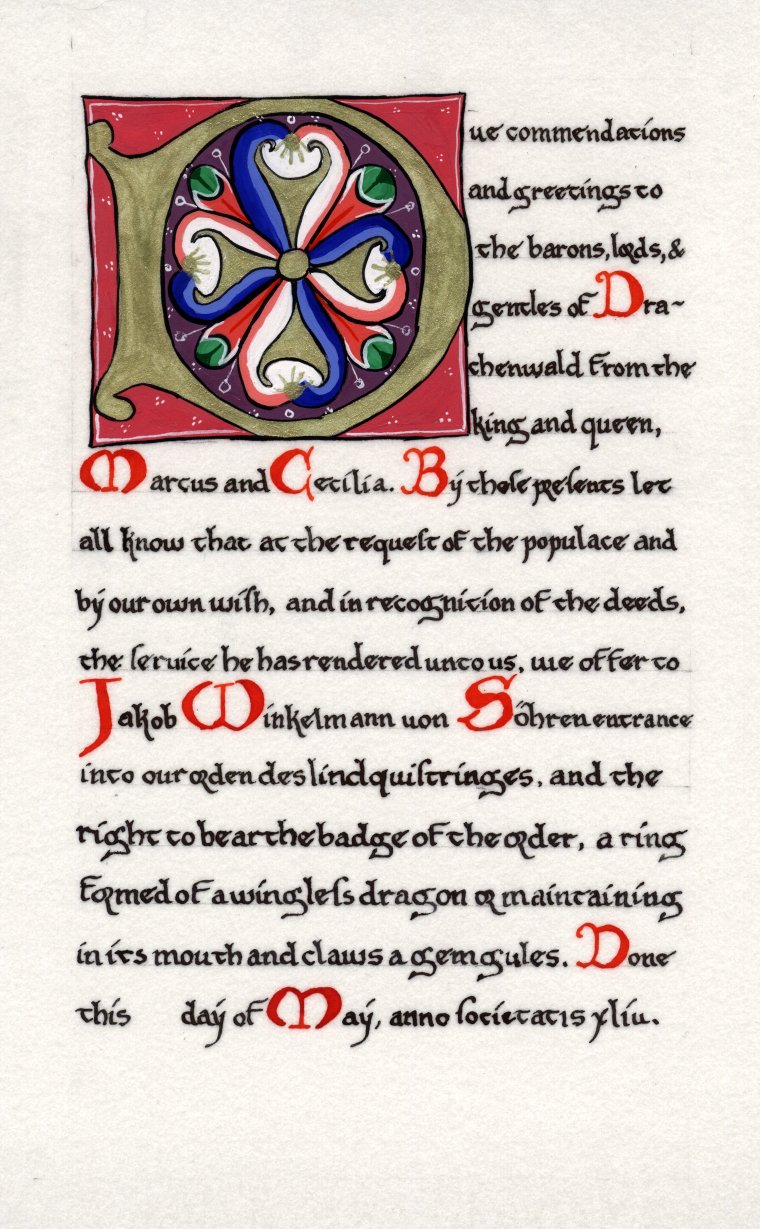 Due commendations
and greetings to
the barons, lords, &
gentles of Dra~
chenwald from the
king and queen,
Marcus and Cecilia. By these presents let
all know that at the request of the populace and
by our own wish, and in recognition of the deeds,
the service he has rendered unto us, we offer to
Jakob Winkelmann von Söhren entrance
into our orden des lindquistringes, and the
right to bear the badge of the order, a ring
formed of a wingless dragon or maintaining
in its mouth and claws a gem gules. Done
this day of May, anno societatis xliv.